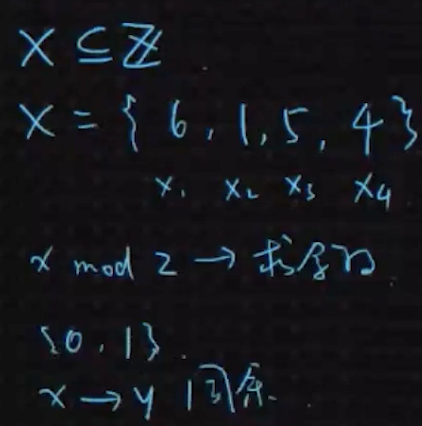 X ⊆ ℤ
X = { 6, 1, 5, 4 }
x₁ x₂ x₃ x₄
x mod 2 → 求余
{0, 1}.
x → y 同余.